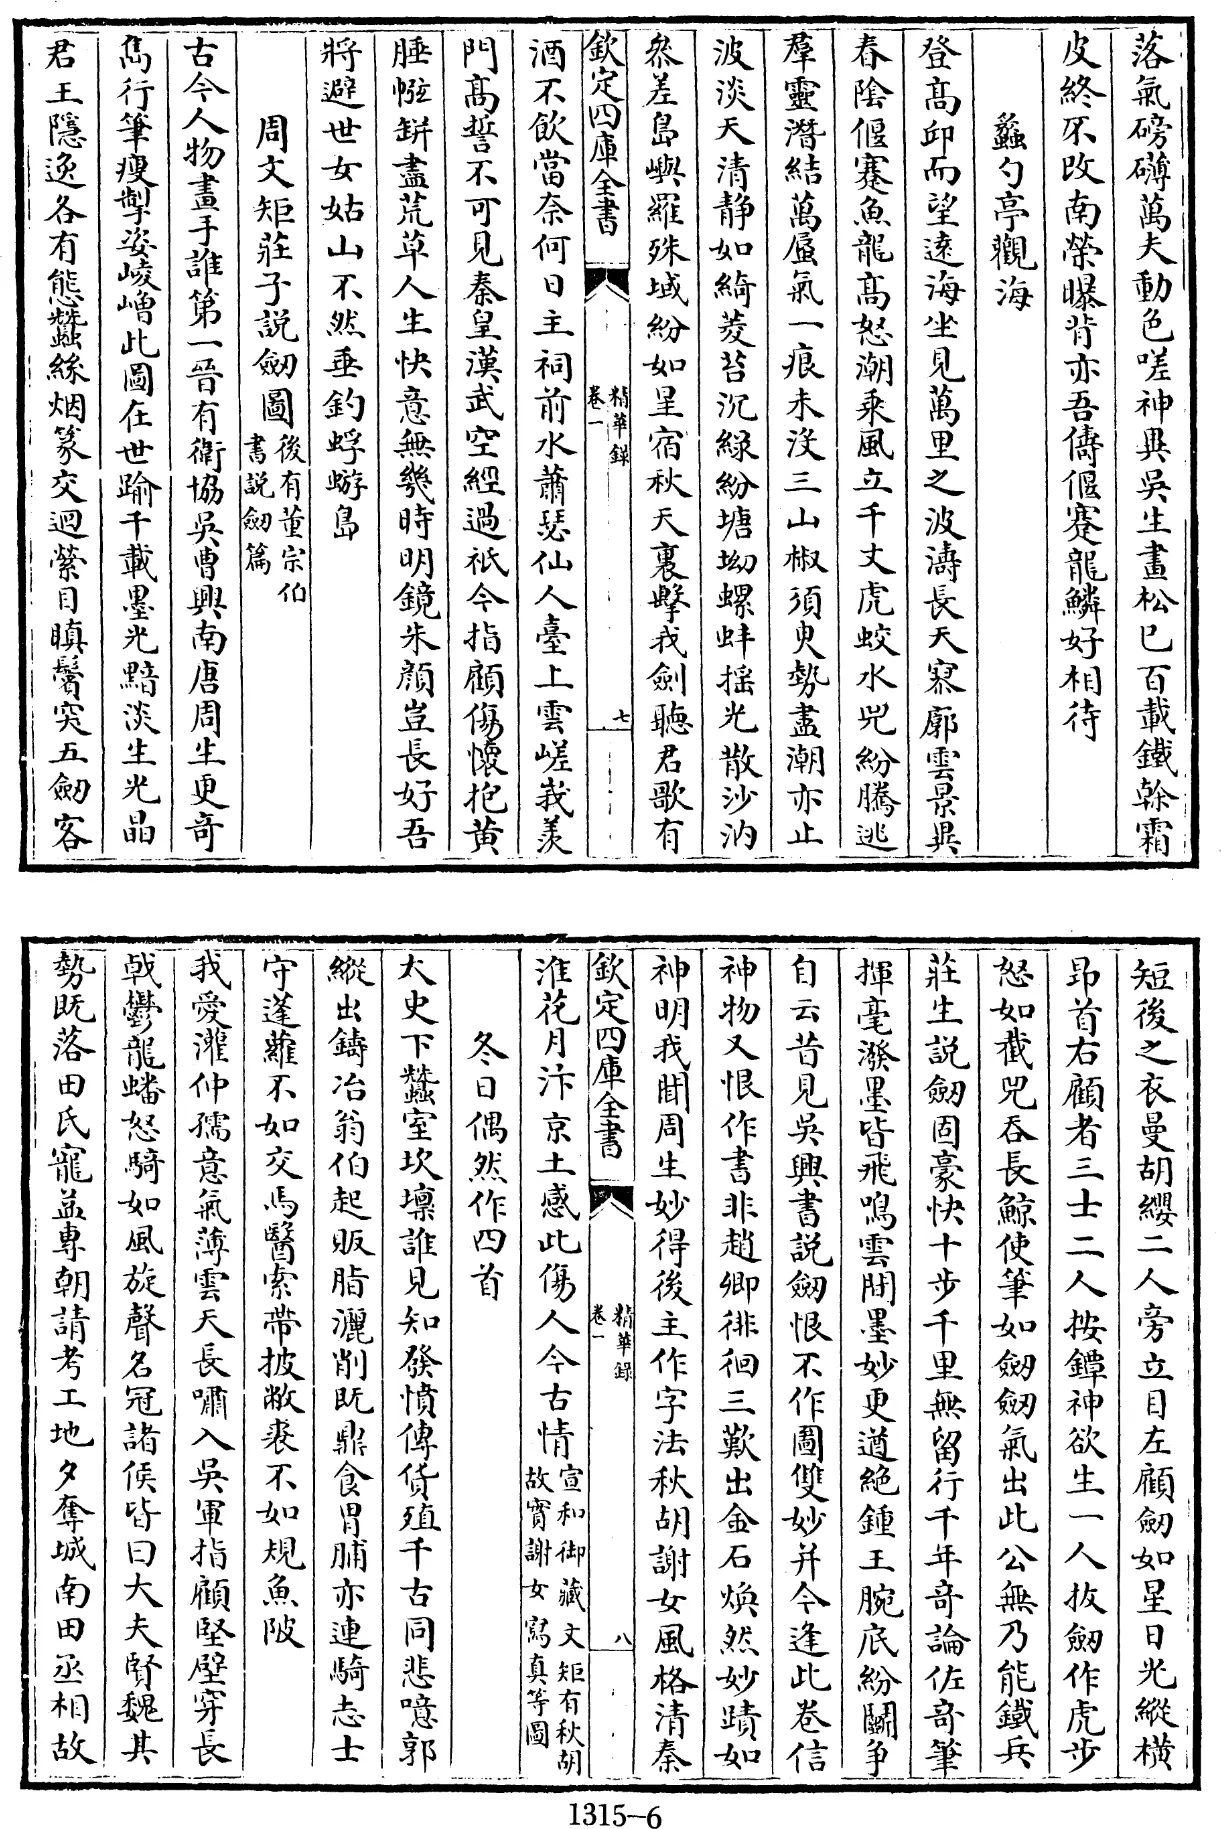 落氣磅礴萬夫動色嗟神異吳生畫松已百載鐵幹霜
皮終不改南榮曝背亦吾儔偃蹇龍鱗好相待
蠡勺亭觀海
登高邱而望逺海坐見萬里之波濤長天寥廓雲景異
春陰偃蹇魚龍高怒潮乘風立千丈虎蛟水兕紛騰逃
羣靈潛結萬蜃氣一痕未沒三山椒須臾勢盡潮亦止
波淡天清静如綺菱苔沉緑紛塘坳螺蚌揺光散沙汭
叅差島嶼羅殊域紛如星宿秋天裏擊我劍聽君歌有
欽定四庫全書
精華録
卷一
七
酒不飲當奈何日主祠前水蕭瑟仙人臺上雲嵯峩羨
門高誓不可見秦皇漢武空經過祇今指顧傷懷抱黄
腄㡉缾盡荒草人生快意無幾時明鏡朱顔豈長好吾
將避世女姑山不然垂釣蜉蝣島
周文矩莊子説劒圖後有董宗伯
書説劒篇
古今人物畫手誰第一晉有衛協吳曹興南唐周生更奇
雋行筆瘦掣姿崚嶒此圖在世踰千載墨光黯淡生光晶
君王隱逸各有態蠶絲烟篆交迴縈目瞋鬢突五劒客
短後之衣曼胡纓二人旁立目左顧劒如星日光縱横
昻首右顧者三士二人按鐔神欲生一人抜劒作虎步
怒如截兕吞長鯨使筆如劒劒氣出此公無乃能鐵兵
莊生説劒固豪快十步千里無留行千年竒論佐竒筆
揮毫潑墨皆飛鳴雲間墨妙更遒絶鍾王腕底紛鬬争
自云昔見吳興書説劒恨不作圖雙妙并今逢此卷信
神物又恨作書非趙卿徘徊三歎出金石煥然妙蹟如
神明我聞周生妙得後主作字法秋胡謝女風格清秦
欽定四庫全書
精華録
卷一
八
淮花月汴京土感此傷人今古情宣和御藏文矩有秋胡
故實謝女寫真等圖
冬日偶然作四首
太史下蠶室坎壈誰見知發憤傳貨殖千古同悲噫郭
縱出鑄冶翁伯起販脂灑削既鼎食胃脯亦連騎志士
守蓬蘿不如交馬醫索帶披敝裘不如規魚陂
我愛灌仲孺意氣薄雲天長嘯入吳軍指顧堅壁穿長
戟鬱龍蟠怒騎如風旋聲名冠諸侯皆曰大夫賢魏其
勢既落田氏寵益專朝請考工地夕奪城南田丞相故
1315-6